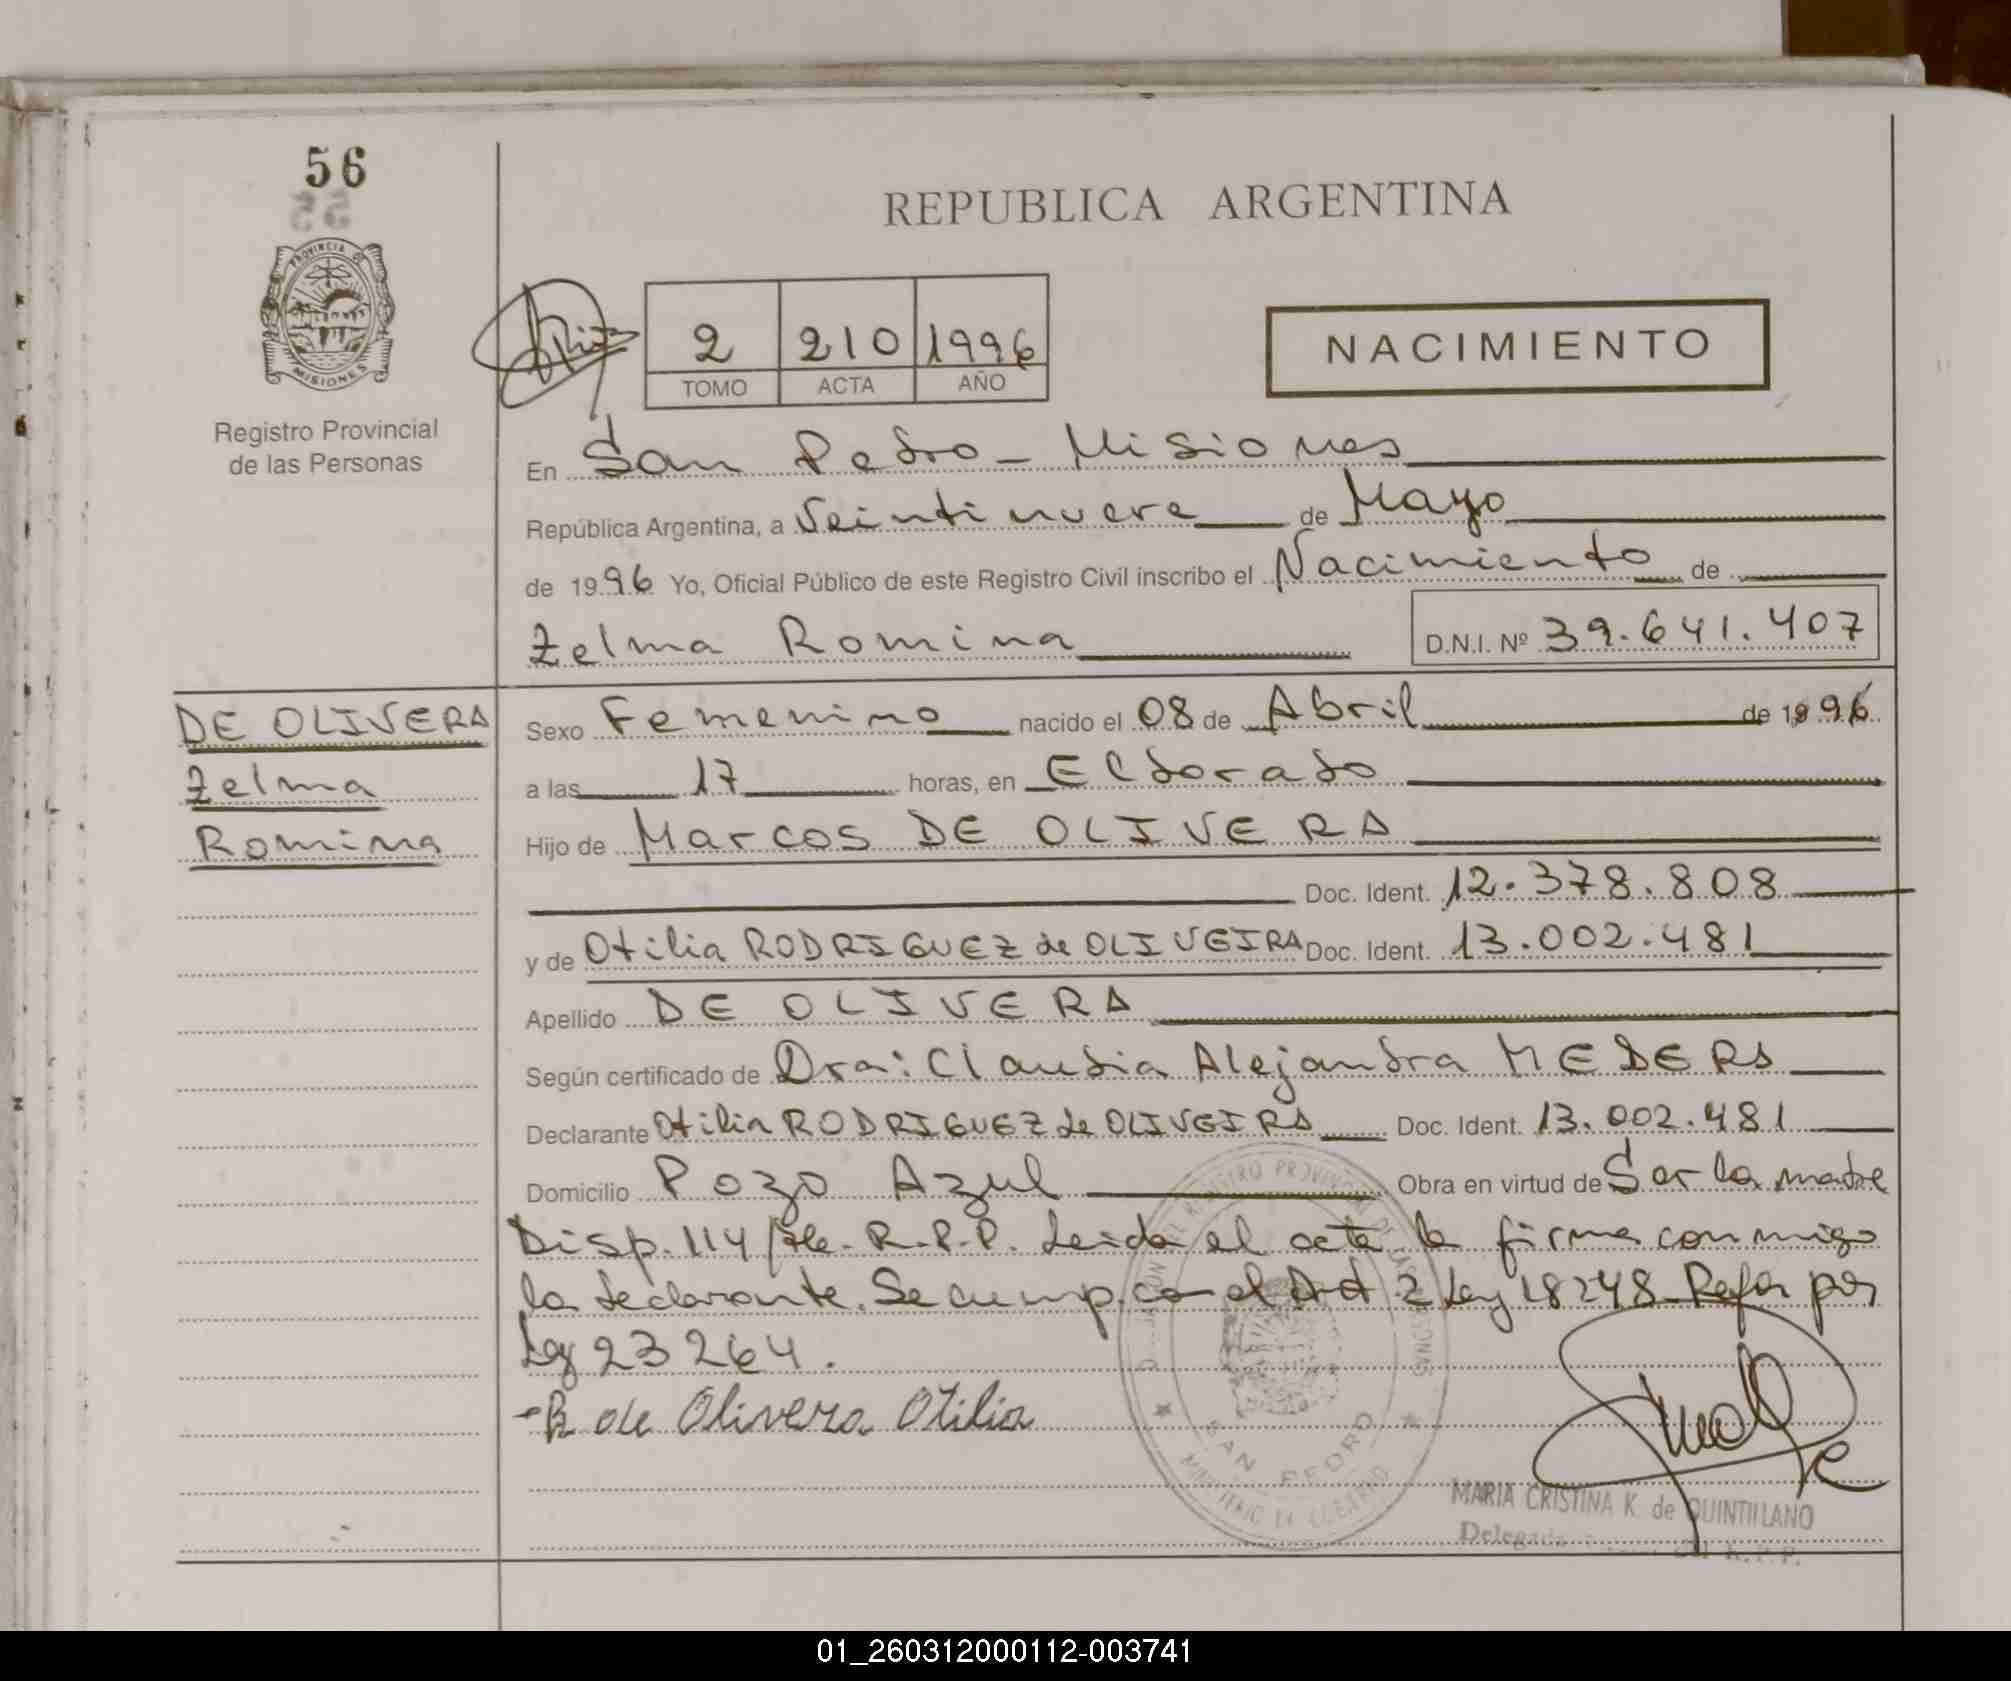 56
PROVINCIA DE
MISIONES
Registro Provincial
de las Personas
REPUBLICA ARGENTINA
2 210 1996
TOMO ACTA AÑO
NACIMIENTO
En San Pedro - Misiones
República Argentina, a Veintinueve de Mayo
de 1996 Yo, Oficial Público de este Registro Civil inscribo el Nacimiento de
Zelma Romina D.N.I. Nº 39.641.407
DE OLIVERA
Zelma
Romina
Sexo Femenino nacido el 08 de Abril de 1996
a las 17 horas, en Eldorado
Hijo de Marcos DE OLIVERA
Doc. Ident. 12.378.808
y de Otilia RODRIGUEZ de OLIVEIRA Doc. Ident. 13.002.481
Apellido DE OLIVERA
Según certificado de Dra: Claudia Alejandra MEDERA
Declarante Otilia RODRIGUEZ de OLIVEIRA Doc. Ident. 13.002.481
Domicilio Pozo Azul Obra en virtud de Ser la madre
Disp. 114 R.P.P. Leida el acta la firma conmigo
la declarante. Se cump. con el Art 2 Ley 18248 Refor por
Ley 23264.
R de Olivera Otilia
SAN PEDRO
MINISTERIO DE GOBIERNO
MARIA CRISTINA K. de QUINTILLANO
Delegada R.P.P.
01_260312000112-003741